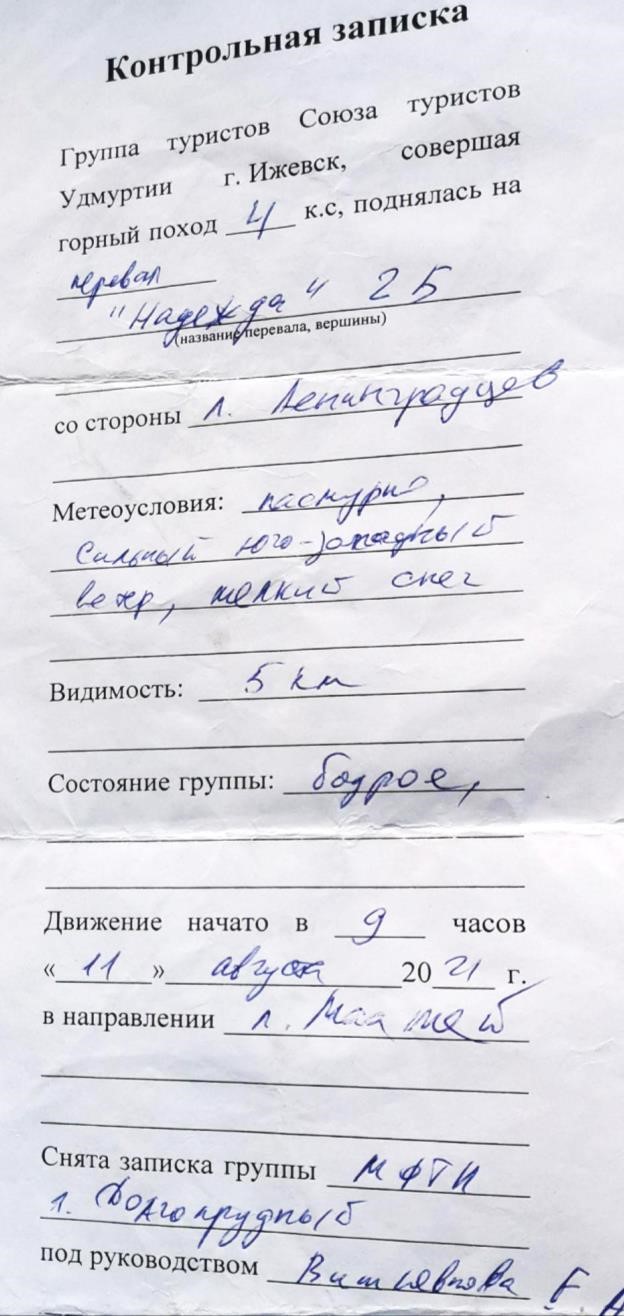 Контрольная записка
Группа туристов Союза туристов
Удмуртии г. Ижевск, совершая
горный поход 4 к.с, поднялась на
перевал
"Надежда" 2Б
(название перевала, вершины)
со стороны л. Ленинградцев
Метеоусловия: пасмурно,
Сильный юго-западный
ветер, мелкий снег
Видимость: 5 км
Состояние группы: бодрое,
Движение начато в 9 часов
«11» августа 2021 г.
в направлении л.
Снята записка группы МФТИ
г. Долгопрудный
под руководством